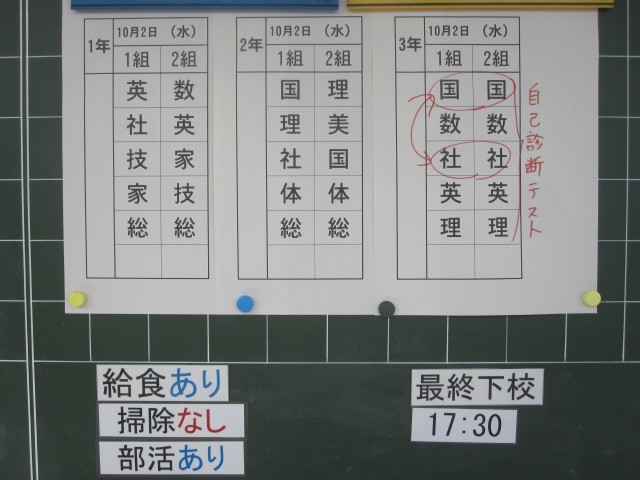 1年
10月2日 （水）
1組 2組
英 数
社 英
技 家
家 技
総 総
2年
10月2日 （水）
1組 2組
国 理
理 美
社 国
体 体
総 総
3年
10月2日 （水）
1組 2組
国 国
数 数
社 社
英 英
理 理
自己診断テスト
給食あり
掃除なし
部活あり
最終下校
17:30